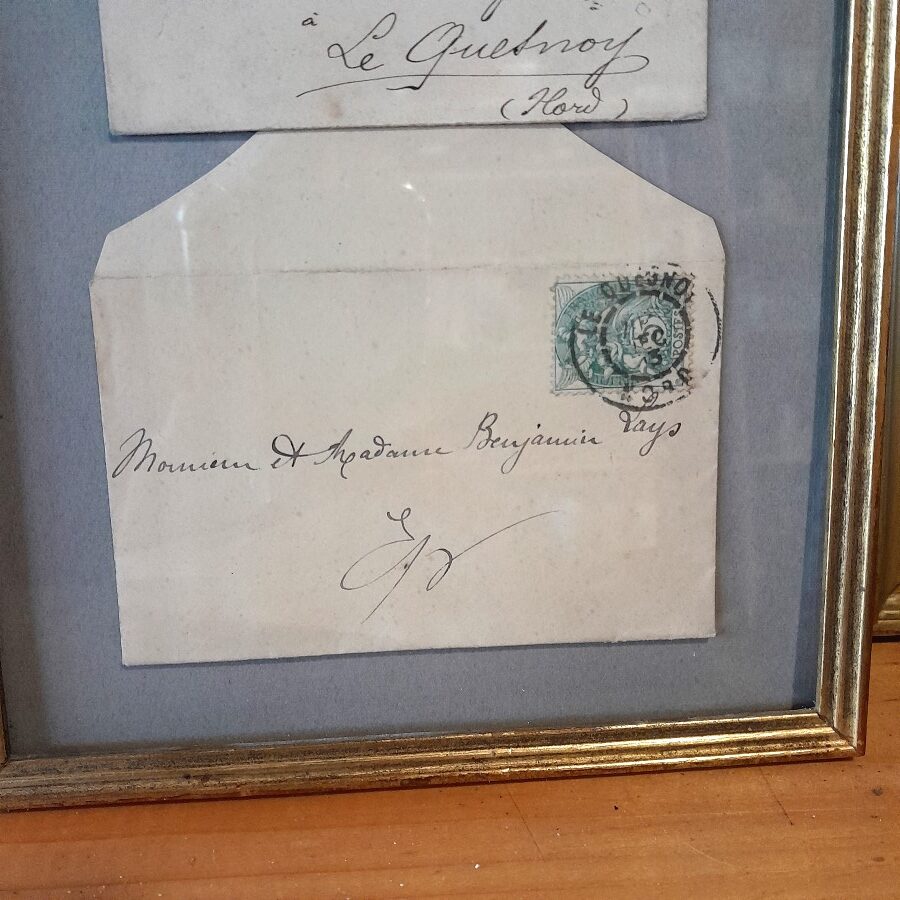 à
Le Quesnoy
(Nord)
LE QUESNOY
POSTES
Monsieur et Madame Benjamin Pays